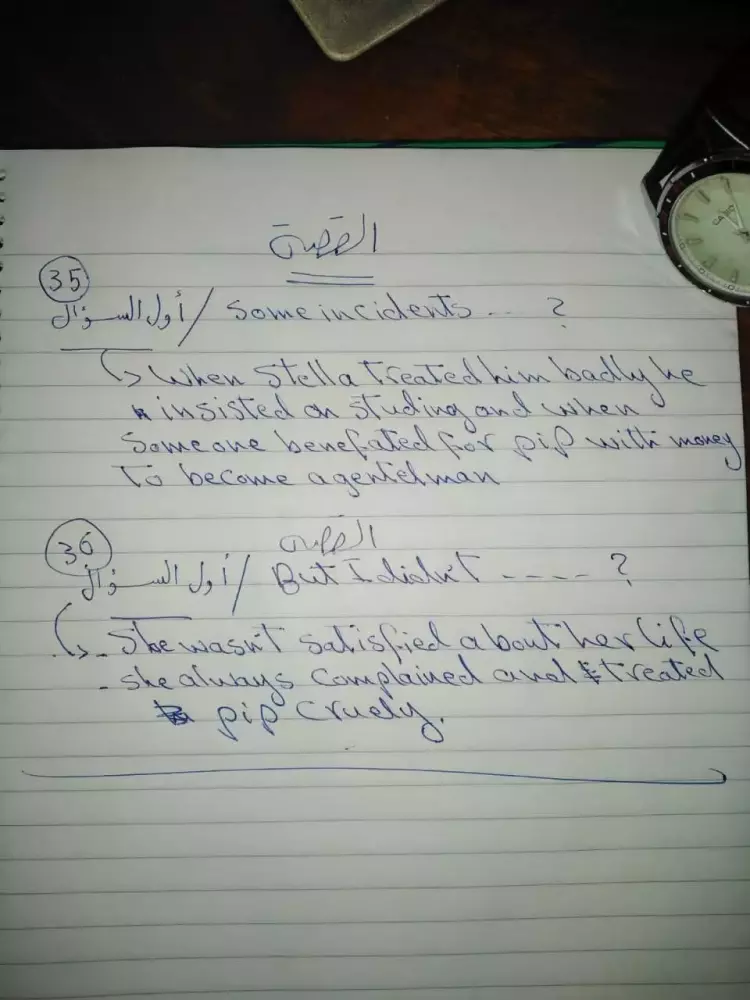 القصة
35
أول السؤال / Some incidents ... ?
When Stella treated him badly he
insisted on studing and when
Someone benefated for pip with money
To become agentelman
القصة
36
أول السؤال / But I didn't ---- ?
- She wasn't satisfied about her life
- she always complained and treated
pip cruely.
CASIO